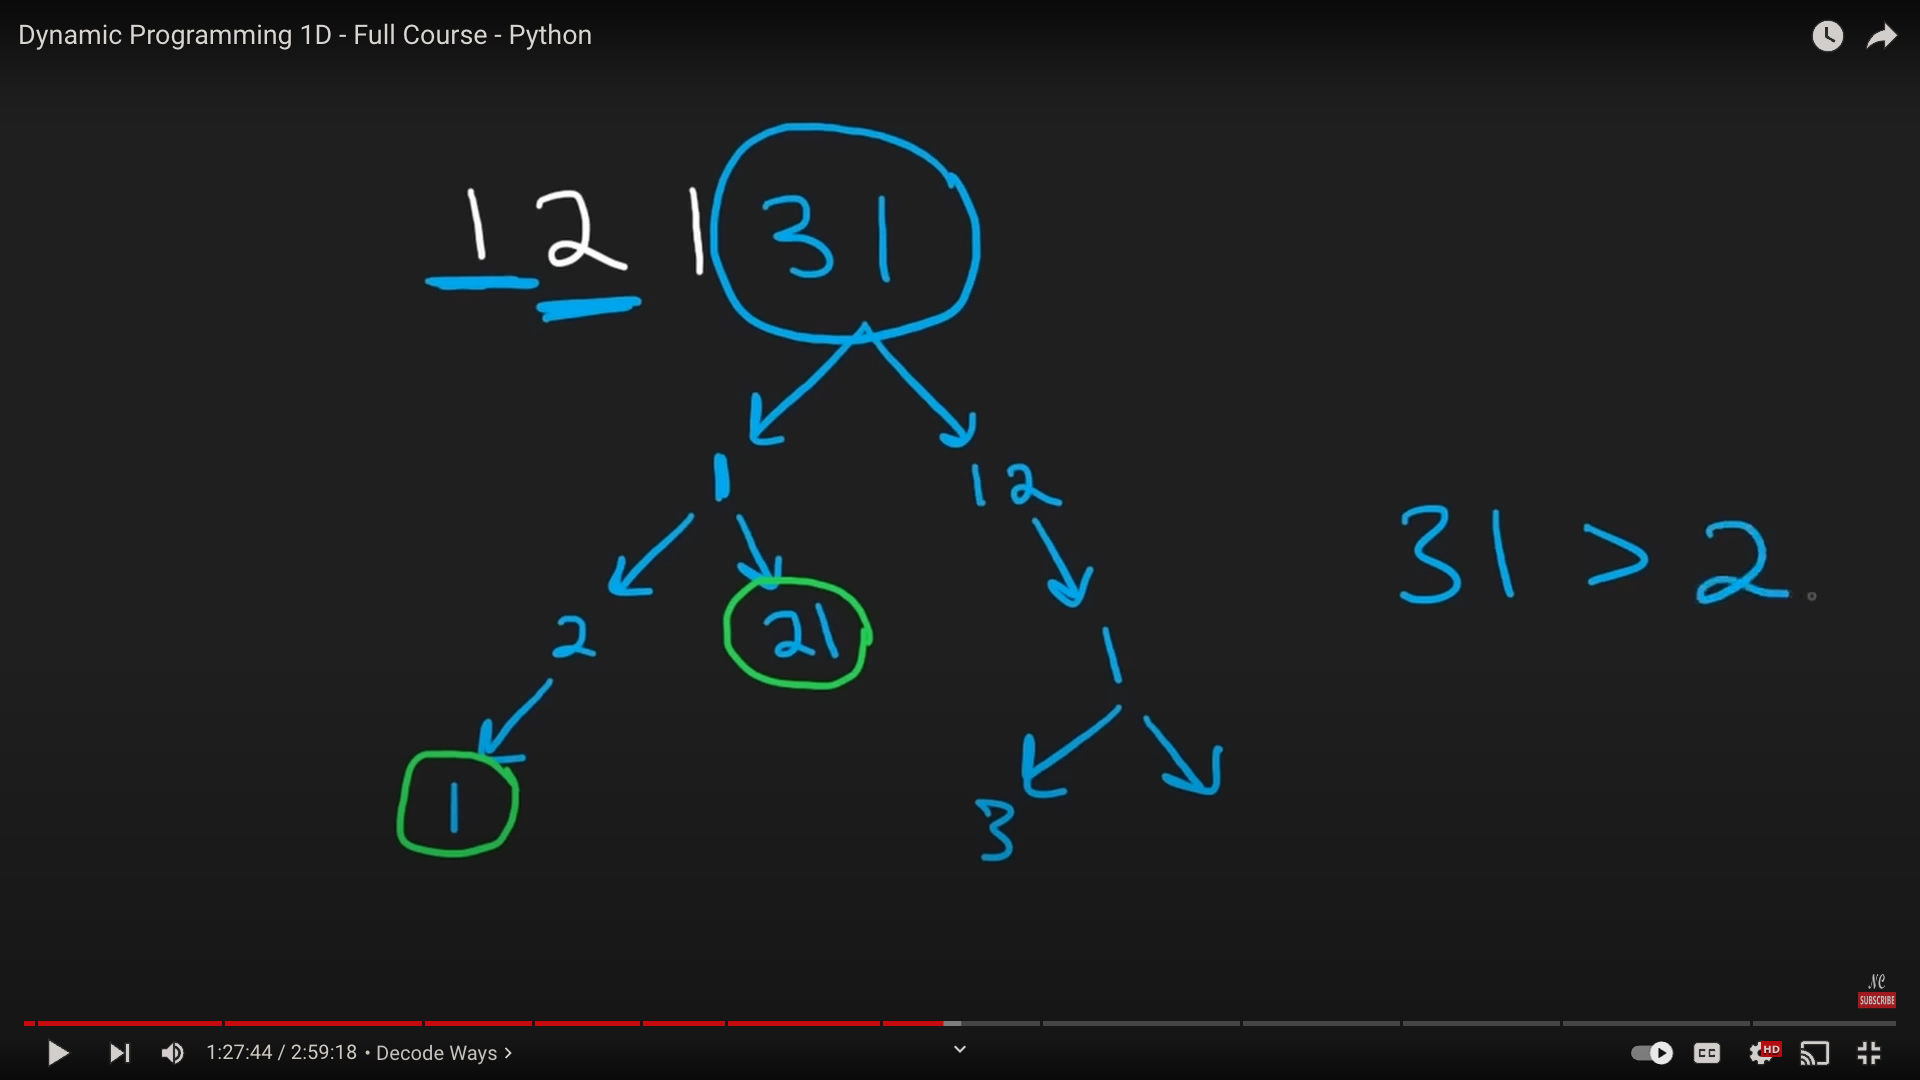 Dynamic Programming 1D - Full Course - Python
1 2 1 3 1
1 12
31 > 2
2 21 1
1 3
NC
SUBSCRIBE
1:27:44 / 2:59:18 • Decode Ways >
CC HD